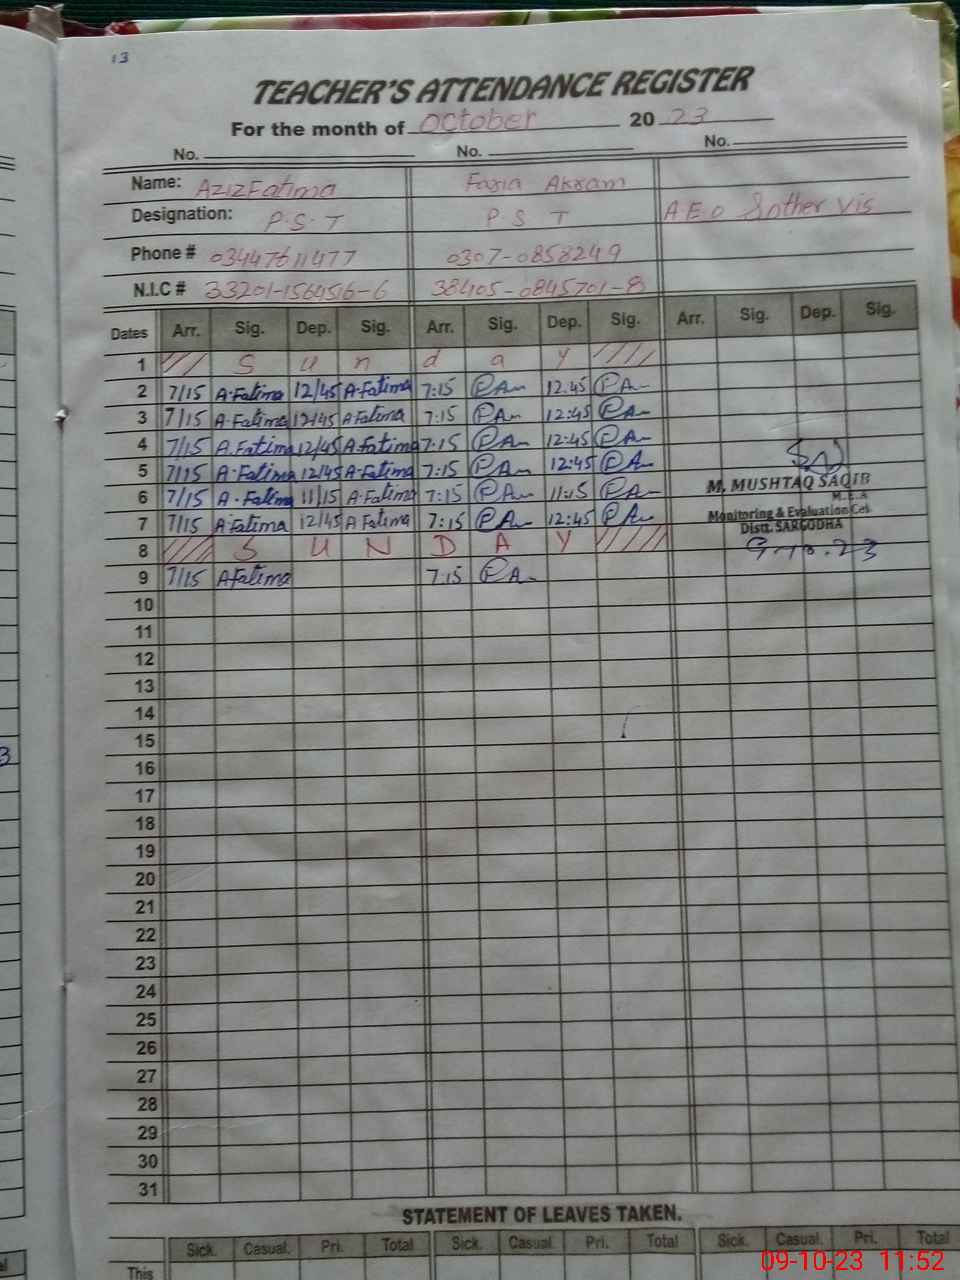 13
TEACHER'S ATTENDANCE REGISTER
For the month of October 20 23
No. No. No.
Name: Aziz Fatima Fasia Akram
Designation: P.S.T P S T A.E.O & other vis
Phone # 03447611477 0307-0858249
N.I.C # 33201-1564516-6 38405-0845701-8
Dates Arr. Sig. Dep. Sig. Arr. Sig. Dep. Sig. Arr. Sig. Dep. Sig.
1 S u n d a y
2 7/15 A.Fatima 12/45 A.Fatima 7:15 12.45
3 7/15 A.Fatima 12/45 A Fatima 7:15 12:45
4 7/15 A.Fatima 12/45 A.Fatima 7:15 12:45
5 7/15 A.Fatima 12/45 A.Fatima 7:15 12:45
6 7/15 A.Fatima 11/15 A.Fatima 7:15 11:15
M. MUSHTAQ SAQIB
M.E.A
7 7/15 A.Fatima 12/45 A Fatima 7:15 12:45
Monitoring & Evaluation Cell
Distt. SARGODHA
8 S U N D A Y
9-10.23
9 7/15 A Fatima 7.15
10
11
12
13
14
15
16
17
18
19
20
21
22
23
24
25
26
27
28
29
30
31
STATEMENT OF LEAVES TAKEN.
Sick. Casual. Pri. Total Sick. Casual. Pri. Total Sick. Casual. Pri. Total
This
09-10-23 11:52